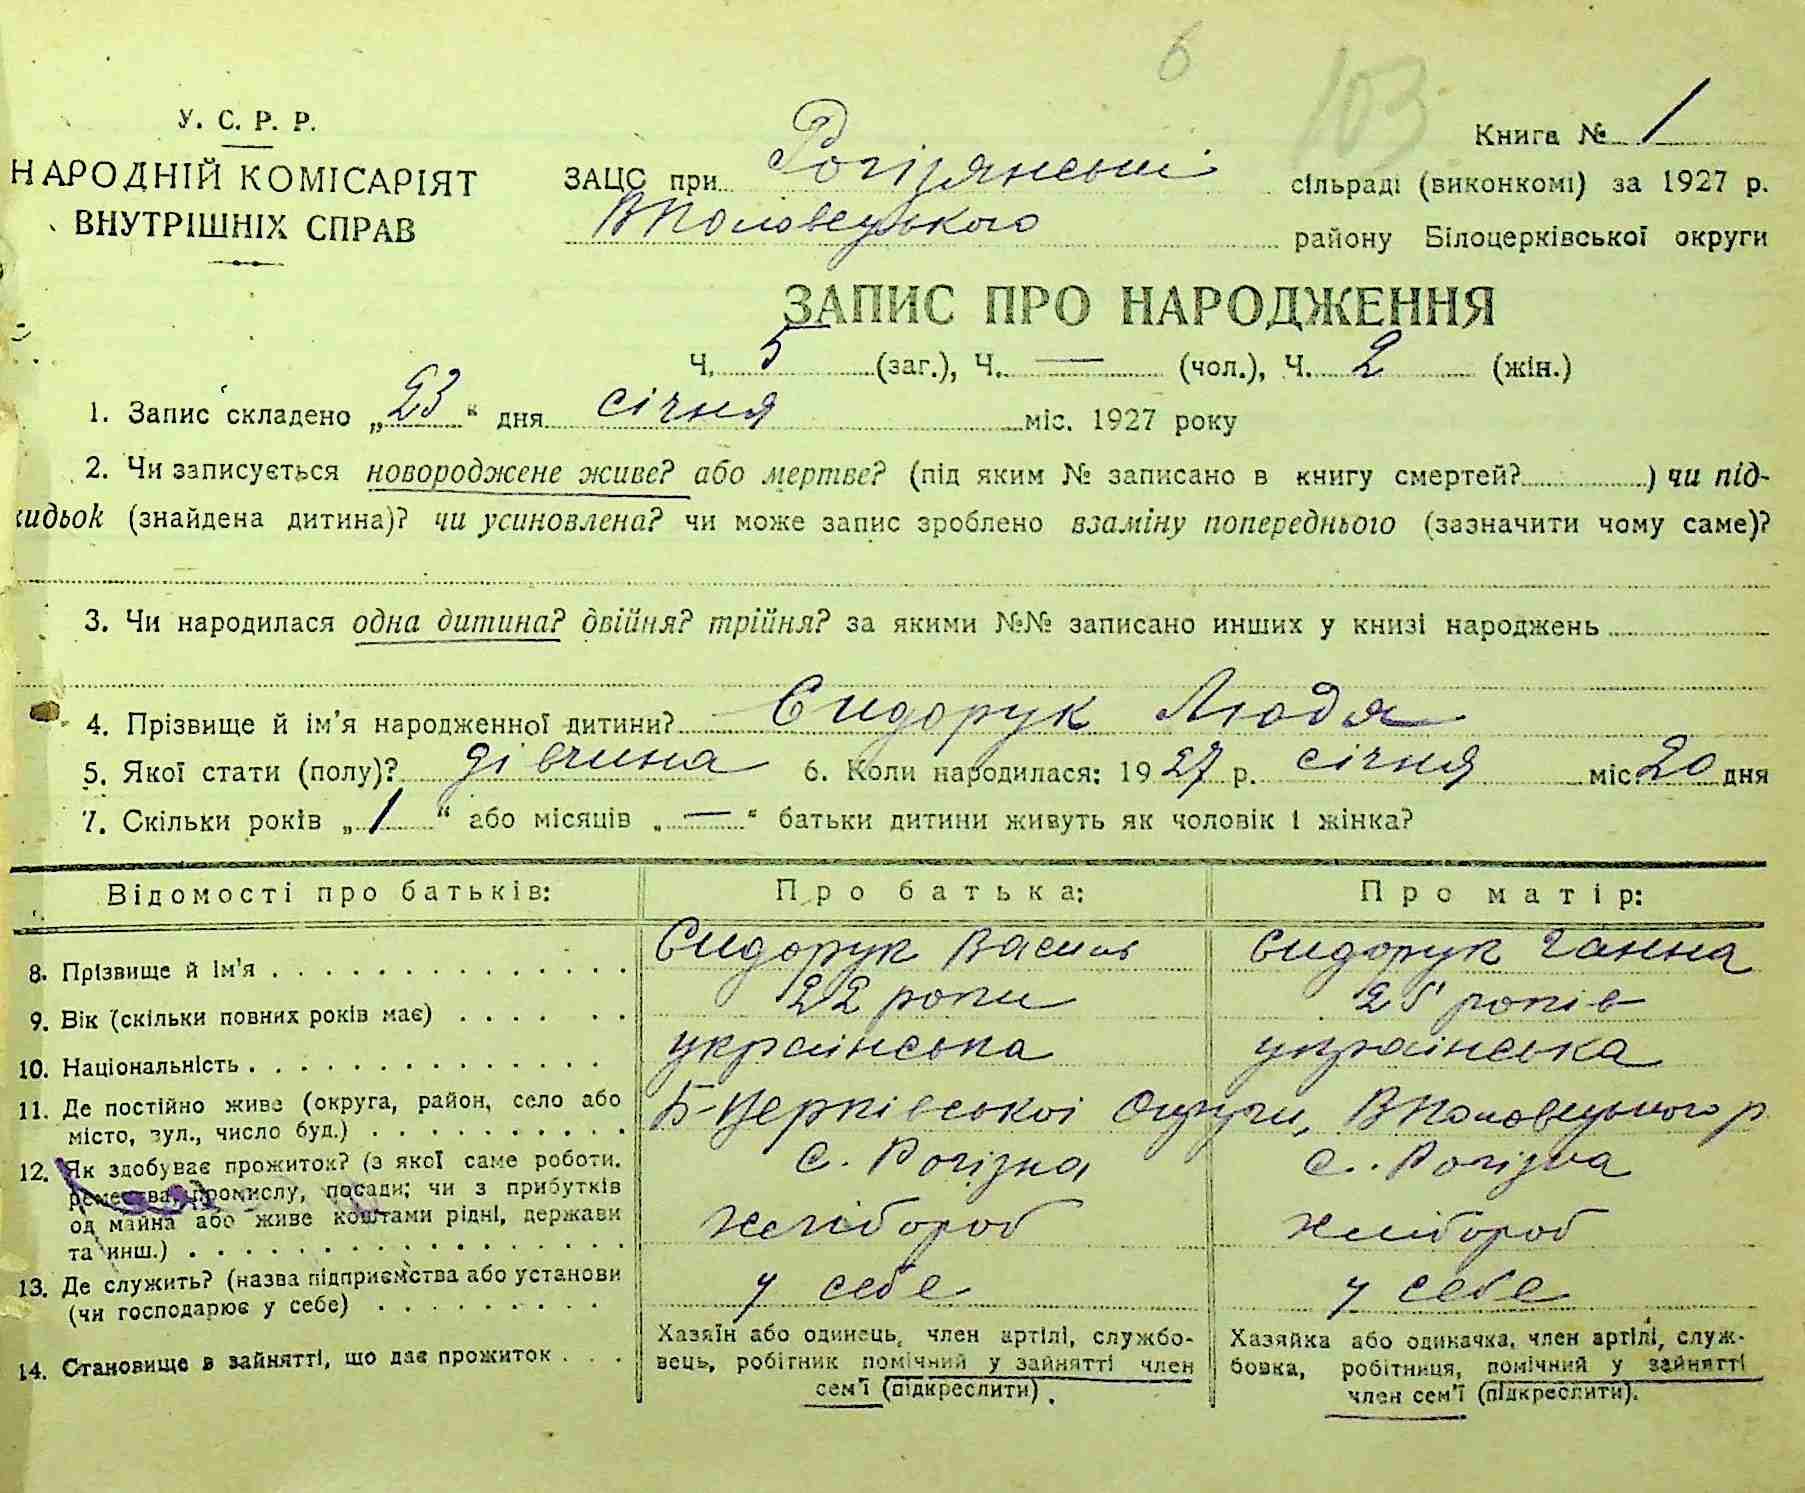 6
103
У. С. Р. Р.
НАРОДНІЙ КОМІСАРІЯТ
ВНУТРІШНІХ СПРАВ
Книга № 1
ЗАЦС при Рогізянській сільраді (виконкомі) за 1927 р.
ВПоловецького району Білоцерківської округи
ЗАПИС ПРО НАРОДЖЕННЯ
Ч. 5 (заг.), Ч. — (чол.), Ч. 2 (жін.)
1. Запис складено „23“ дня січня міс. 1927 року
2. Чи записується новороджене живе? або мертве? (під яким № записано в книгу смертей? ) чи під-
кидьок (знайдена дитина)? чи усиновлена? чи може запис зроблено взаміну попереднього (зазначити чому саме)?
3. Чи народилася одна дитина? двійня? трійня? за якими №№ записано инших у книзі народжень
4. Прізвище й ім'я народженної дитини? Сидорук Людя
5. Якої стати (полу)? дівчина 6. Коли народилася: 1927 р. січня міс. 20 дня
7. Скільки років „1“ або місяців „—“ батьки дитини живуть як чоловік і жінка?
Відомості про батьків: Про батька: Про матір:
8. Прізвище й ім'я . . . . Сидорук Василь Сидорук Ганна
9. Вік (скільки повних років має) . . . . 22 роки 25 років
10. Національність . . . . українська українська
11. Де постійно живе (округа, район, село або
місто, вул., число буд.) . . . . Б-Церківської Округи, ВПоловецького р.
с. Рогізна с. Рогізна
12. Як здобуває прожиток? (з якої саме роботи.
ремества, промислу, посади; чи з прибутків
од майна або живе коштами рідні, держави
та инш.) . . . . хлібороб хлібороб
13. Де служить? (назва підприємства або установи
(чи господарює у себе) . . . . у себе у себе
14. Становище в зайнятті, що дає прожиток . . .
Хазяїн або одинець, член артілі, службо-
вець, робітник помічний у зайнятті член
сем'ї (підкреслити).
Хазяйка або одиначка, член артілі, служ-
бовка, робітниця, помічний у зайнятті
член сем'ї (підкреслити).